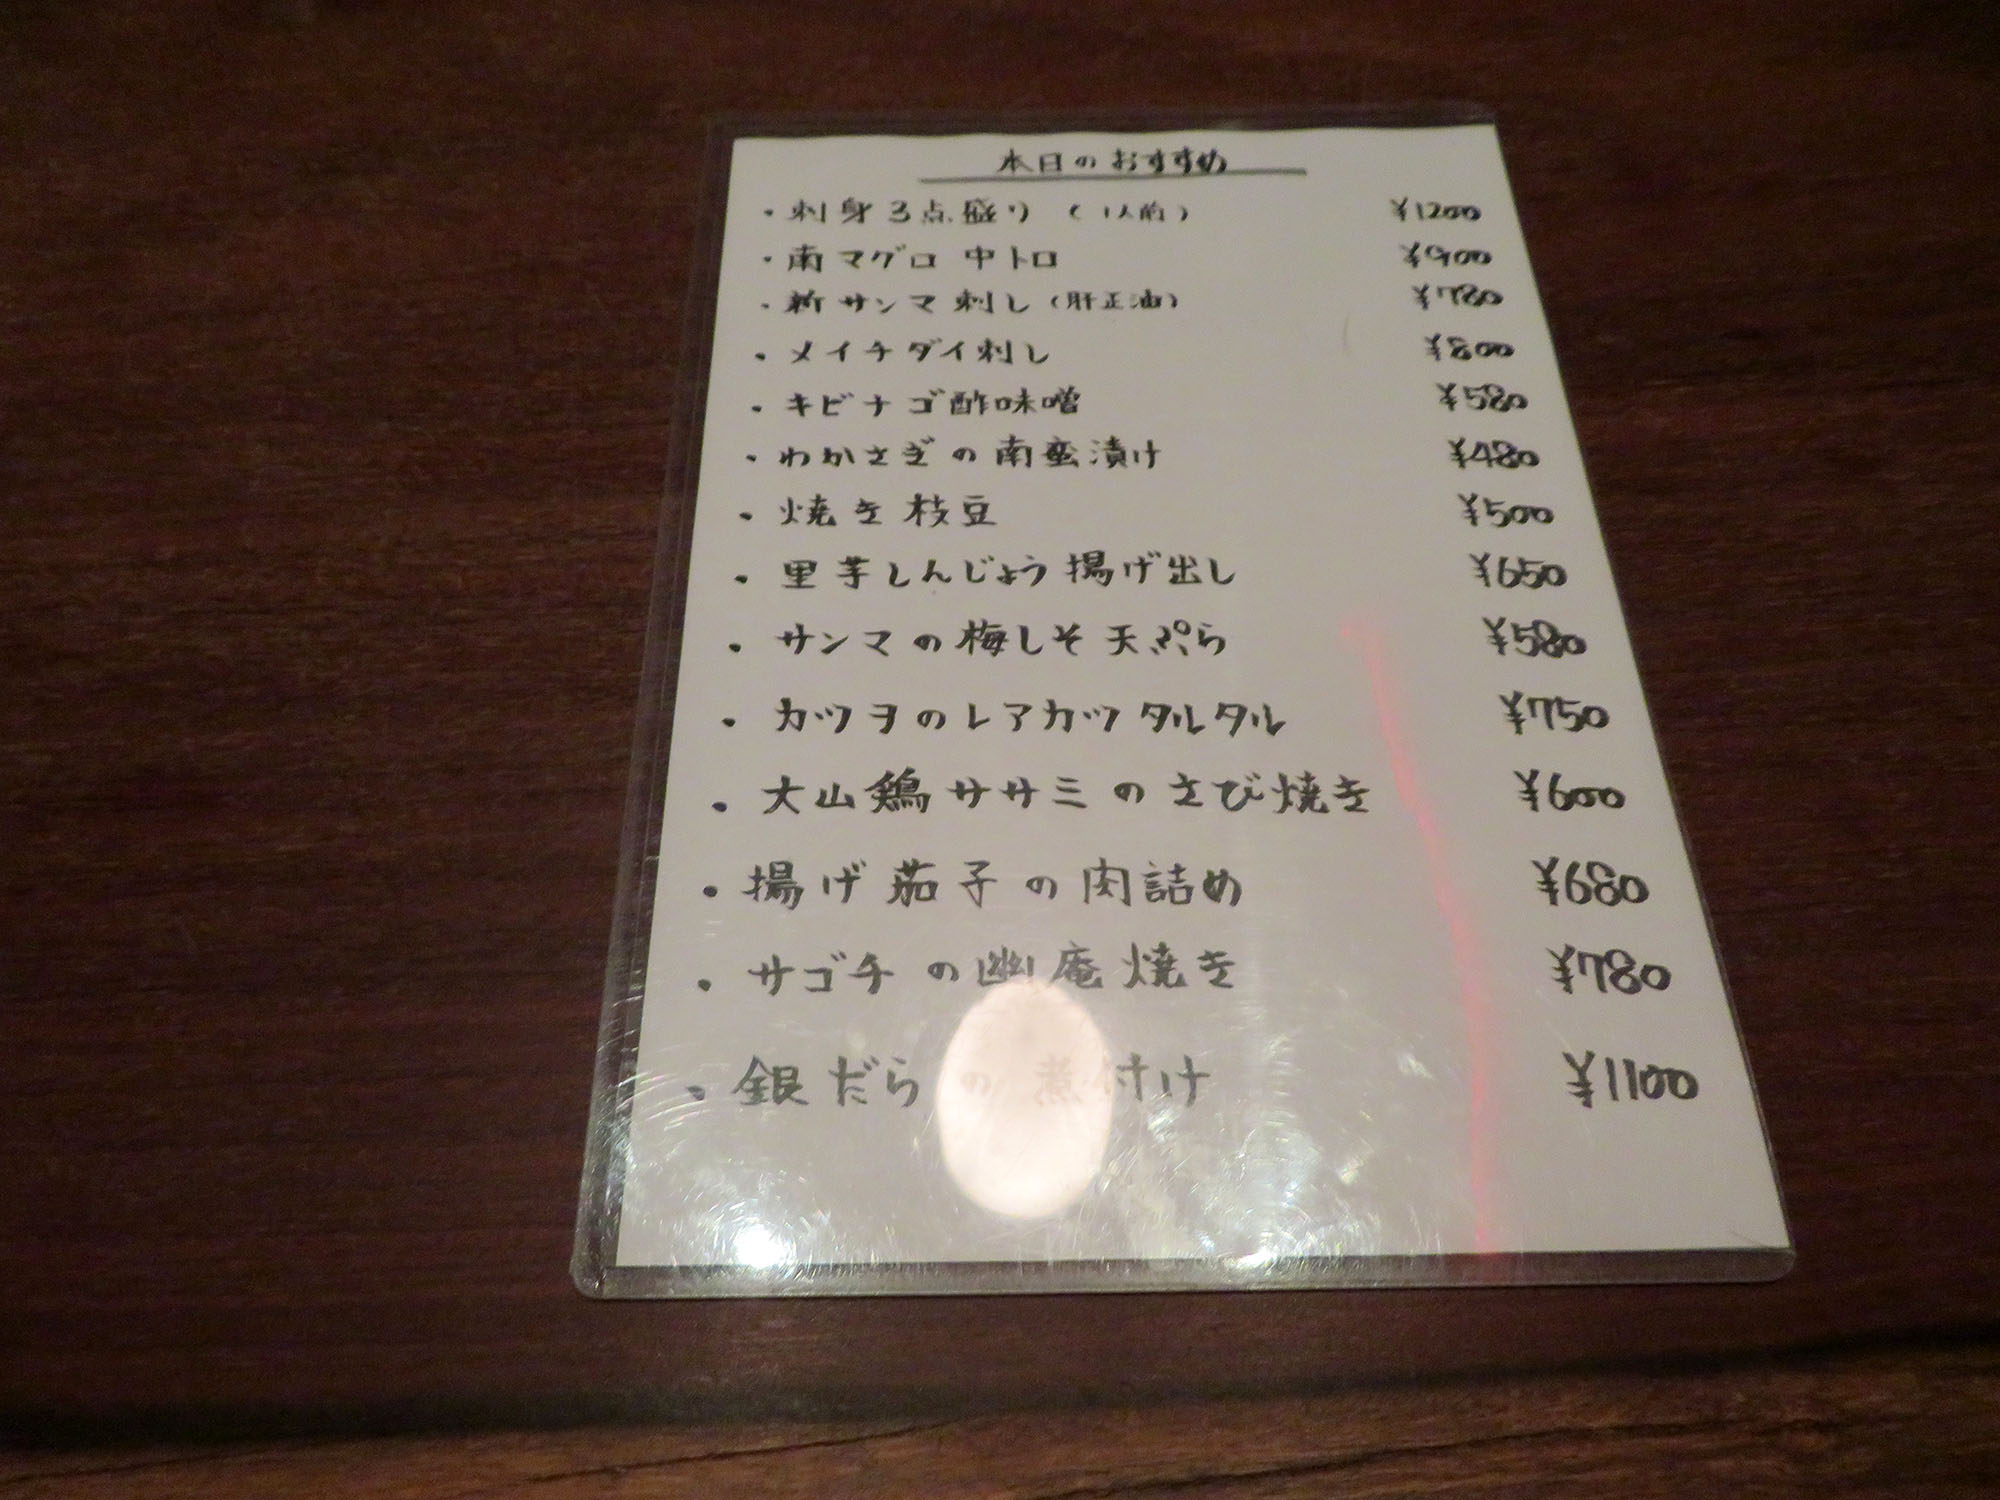 本日のおすすめ
・刺身3点盛り(1人前) ¥1200
・南マグロ 中トロ ¥900
・新サンマ刺し(肝正油) ¥780
・メイチダイ刺し ¥800
・キビナゴ酢味噌 ¥580
・わかさぎの南蛮漬け ¥480
・焼き枝豆 ¥500
・里芋しんじょう揚げ出し ¥650
・サンマの梅しそ天ぷら ¥580
・カツヲのレアカツタルタル ¥750
・大山鶏ササミのさび焼き ¥600
・揚げ茄子の肉詰め ¥680
・サゴチの幽庵焼き ¥780
・銀だらの煮付け ¥1100